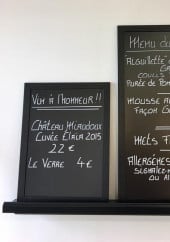 Vin à l'honneur !!
Château Miradoux
Cuvée 2015
22 €
Le Verre 4 €
Menu du
Aiguillette
Coulis
Purée de Pom
Mousse
Façon G
Mets F
Allergènes
Signalez